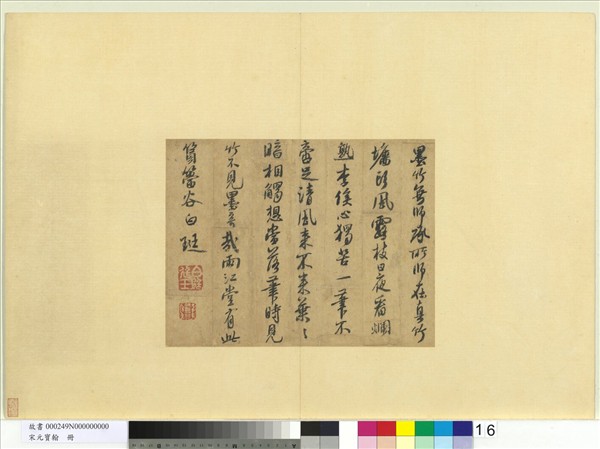 墨竹無師承所師在真竹
墻頭風露枝日夜看爛
熟李侯心獨苦一筆不
啻足清風來不來葉〻
暗相觸想當落筆時見
竹不見墨哉兩江堂有此
篔簹谷白珽
故書 000249N000000000
宋元寶翰 冊
16